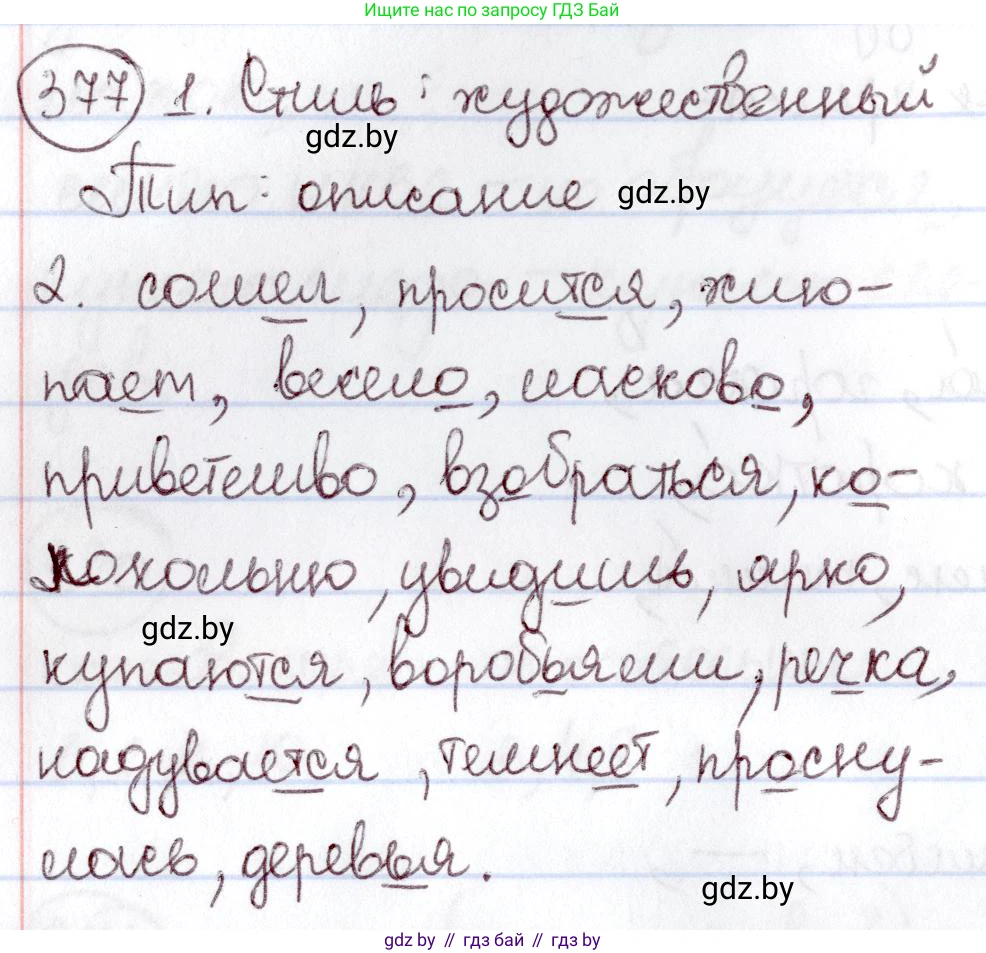 Ищите нас по запросу ГДЗ Бай
377 1. Стиль: художественный
gdz.by
Тип: описание gdz.by
2. сошел, просится, хлю-
пает, весело, ласково,
приветливо, взобраться, ко-
локольню, увидишь, ярко,
gdz.by
купаются, воробьями, речка,
надувается, темнеет, просну-
лась, деревья.
gdz.by
gdz.by // гдз бай // гдз by